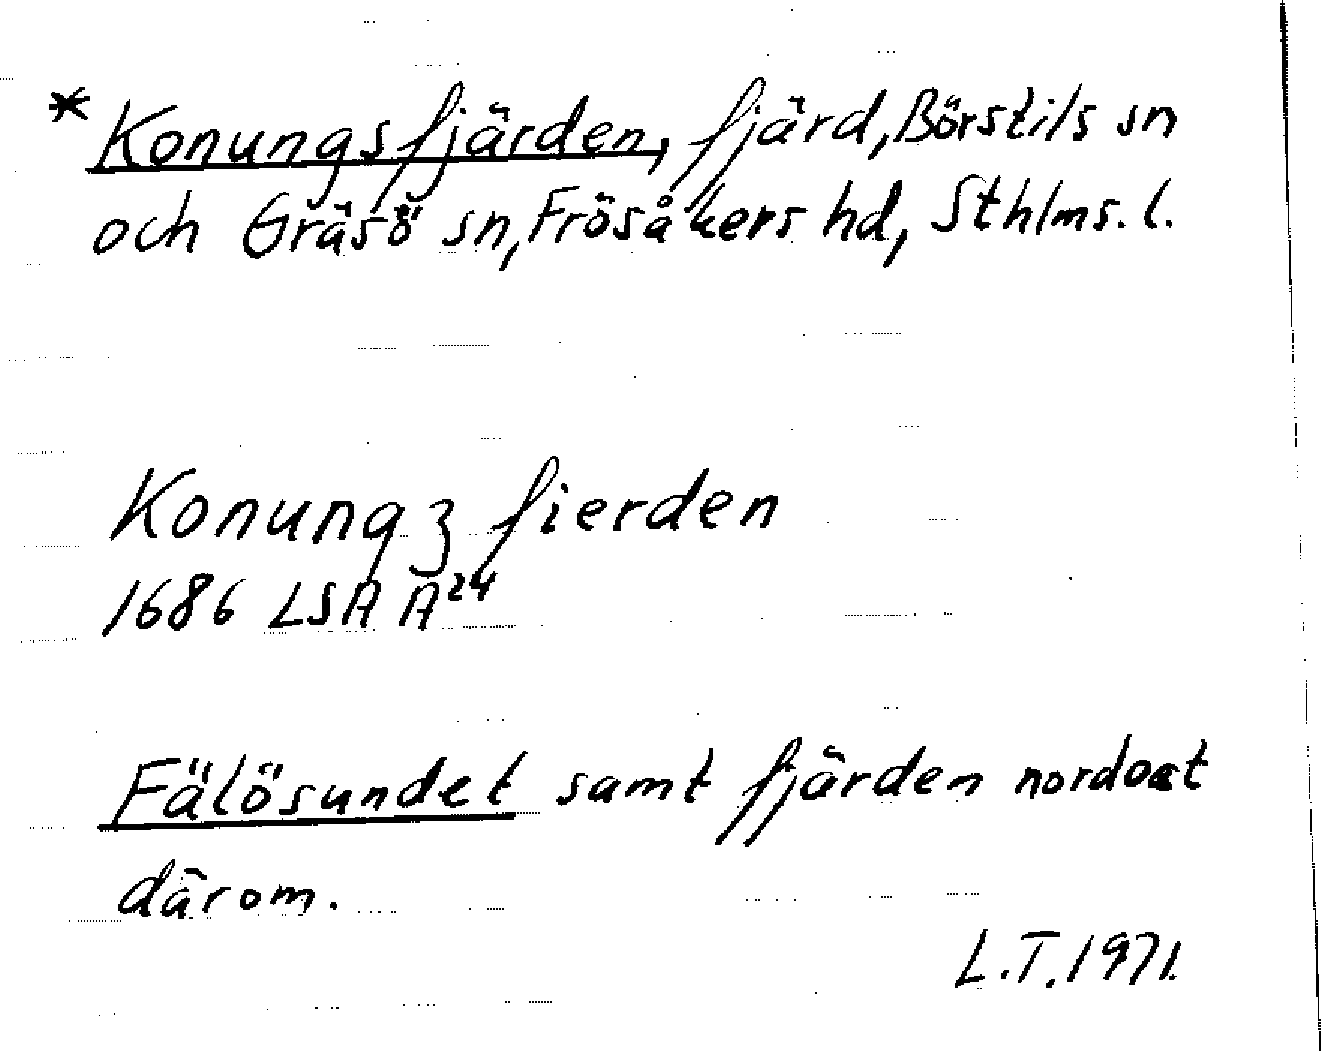 *Konungsfjärden, fjärd, Börstils sn
och Gräsö sn, Frösåkers hd, Sthlms. l.
Konungz fierden
1686 LSA A²⁴
Fälösundet samt fjärden nordost
därom.
L.T. 1971